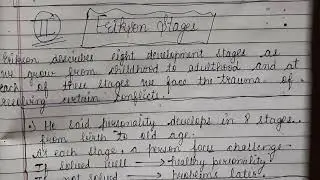 11
Erikson Stages
Erikson describes eight development stages as
we grow from childhood to adulthood and at
each of these stages we face the trauma of
resolving certain conflicts.
He said personality develops in 8 stages
from birth to old age.
As each stage, a person face challenge.
If solved well → healthy personality
If not solved → problems later.